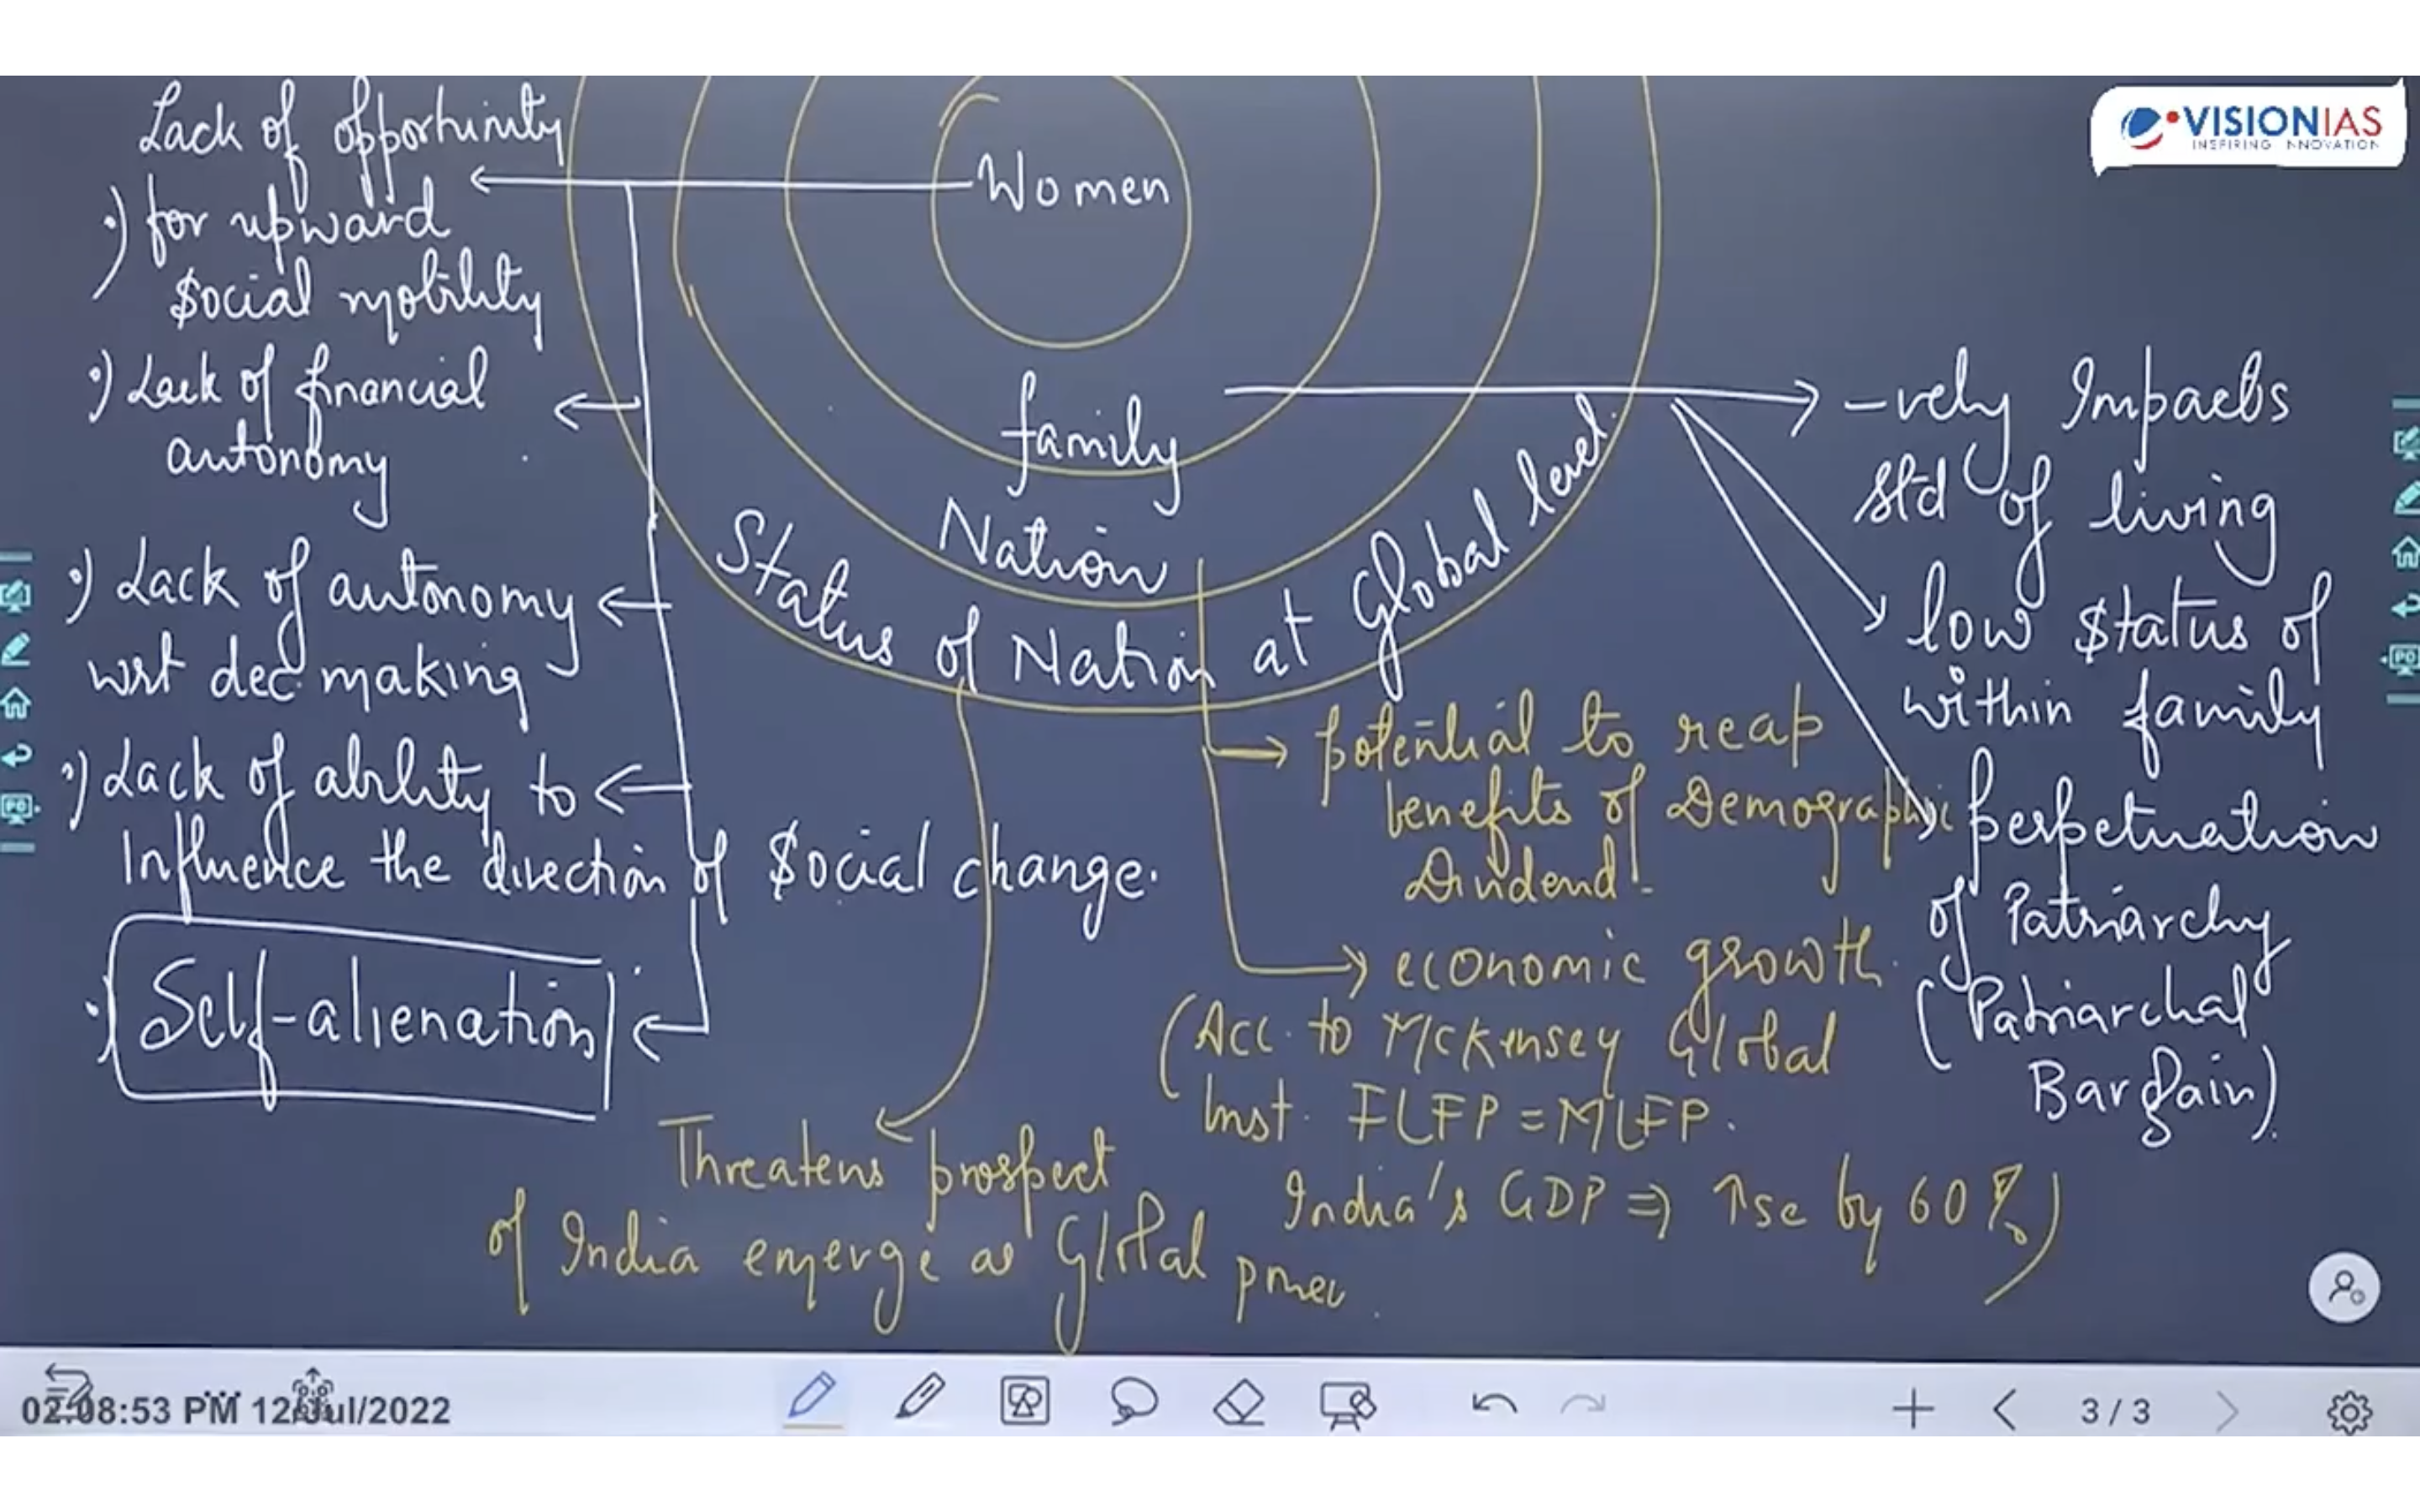 VISIONIAS
INSPIRING INNOVATION
Lack of opportunity
·) for upward
social mobility
·) Lack of financial
autonomy
·) Lack of autonomy
wrt dec. making
·) Lack of ability to
Influence the direction of social change.
·) Self-alienation
Women
family
Nation
Status of Nation at Global level
-vely Impacts
std of living
low status of
within family
perpetuation
of Patriarchy
(Patriarchal
Bargain).
potential to reap
benefits of Demographic
Dividend.
economic growth.
(Acc. to McKinsey Global
Inst. FLFP = MLFP.
India's GDP ⇒ ↑se by 60%)
Threatens prospect
of India emerge as Global power.
02:08:53 PM 12/Jul/2022
3 / 3